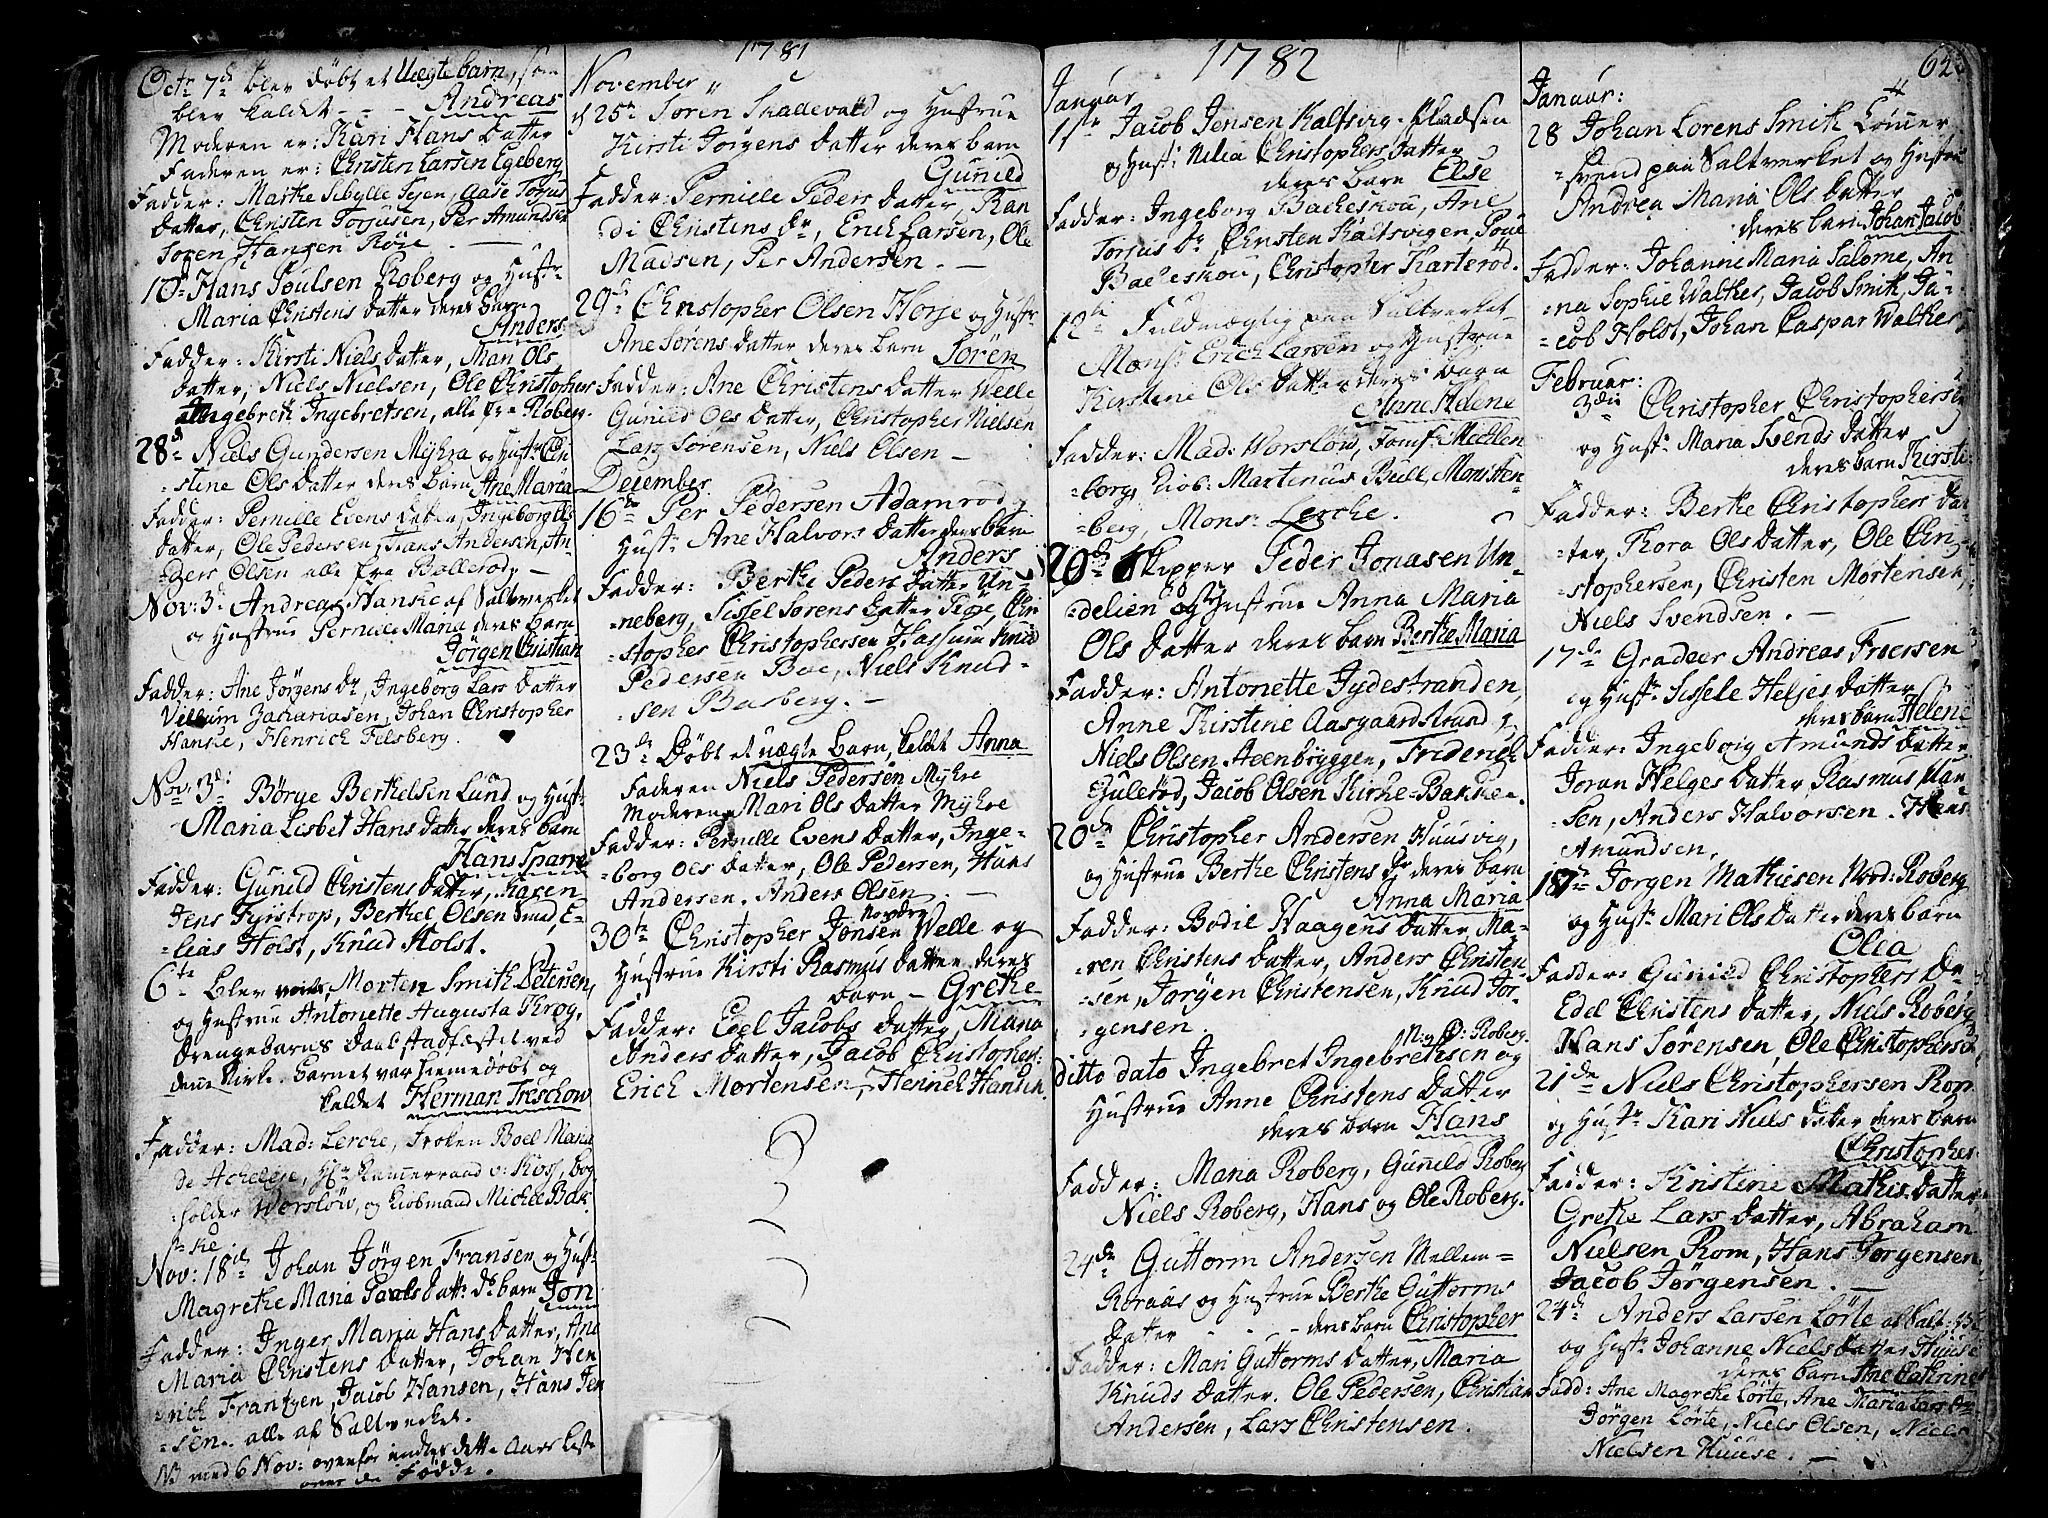 Octr 7de blev døbt et Uægte barn, som
blev kaldet - - - Andreas
Moderen er: Kari Hans Datter
Faderen er: Christen Larsen Egeberg
Fadder: Marthe Sibylle Sejen, Aase Torjus
Datter, Christen Torjusen, Per Amundsen
Søren Hansen Røse. —
10de Hans Poulsen Roberg og Hustr
Maria Christens Datter deres barn
Anders
Fadder: Kirsti Niels Datter, Mari Ols
Datter, Niels Nielsen, Ole Christophers
Ingebreth Ingebretsen, alle fra Roberg.
28de Niels Gundersen Myhra og Hustr Chri
=stine Ols Datter deres barn Ane Maria
Fadder: Pernille Evens Datter, Ingeborg Ols
Datter, Ole Pedersen, Hans Andersen, An-
ders Olsen alle fra Bollerød. —
Nov: 3de Andreas Hanske af Saltverket
og Hustrue Pernille Maria deres barn
Jørgen Christian
Fadder: Ane Jørgens Dr, Ingeborg Lars Datter
Villum Zachariasen, Johan Christopher
Hanske, Henrich Felsberg.
Nov: 3de Børge Berthelsen Lund og Hustr
Maria Lisbet Hans Datter deres barn
Hans Sparre
Fadder: Gunild Christens Datter, Karen
Jens Fyistrop, Berthel Olsen Smid, E-
=lias Holst, Knud Holst.
6te Blev Morten Smith Petersen,
og Hustrue Antonette Augusta Throg,
Drengebarns Daab stadfæstet ved
denne Kirke. Barnet var hiemedøbt og
kaldet Herman Treschow
Fadder: Mad: Lerche, Frøken Boel Maria
de Acheleye, Hr Kammerraad v: Koss, bog
=holder Worsløw, og Kiøbmand Michel Bas
=ske
Nov: 18de Johan Jørgen Fransen og Hust:
Magrethe Maria Pauls Datt: Ds barn Jon
Fadder: Inger Maria Hans Datter, Ane
Maria Christens Datter, Johan Hen
=rich Frantzen, Jacob Hansen, Hans Jen
=sen. alle af Saltverket.
NB med 6 Nov: ovenfor endtes dette Aars liste
over de Fødde.
1781
November
d 25de Søren Skaadevald og Hustrue
Kirsti Jørgens Datter deres barn
Gunild
Fadder: Pernille Peders Datter, Ran
=di Christens Dr, Erich Larsen, Ole
Madsen, Per Andersen. —
29de Christopher Olsen Horje og Hustr
Ane Sørens Datter deres barn Søren
Fadder: Ane Christens Datter Welle
Gunild Ols Datter, Christopher Nielsen
Lars Sørensen, Niels Olsen —
December
16de Per Pedersen Adamrød og
Hustr Ane Halvors Datter deres barn
Anders
Fadder: Berthe Peders Datter Un=
=neberg, Sissel Sørens Datter Teje, Chri
=stopher Christophersen Hassum Knud
Pedersen Boe, Niels Knud=
=sen Basberg. —
23de Døbt et uægte barn, kaldt Anna
Faderen Niels Pedersen Myhre
Moderen Mari Ols Datter Myhre
Fadder: Pernille Evens Datter, Inge=
=borg Ols Datter, Ole Pedersen, Hans
Andersen, Anders Olsen. —
Nordre
30te Christopher Jensen Welle og
Hustrue Kirsti Rasmus Datter deres
barn — Grethe
Fadder: Edel Jacobs Datter, Maria
Anders Datter, Jacob Christophers:
Erich Mortensen, Henrich Hansen.
1782
Januar
1ste Jacob Jensen Kaltsvig-Pladsen
og Hust: Nilia Christophers Datter
deres barn Else
Fadder: Ingeborg Backeskou, Ane
Torjus Dr, Christen Kaltsvigen, Poul
Backeskou, Christopher Karterød.
12te Fuldmægtig paa Saltverket
Monsr Erich Larsen og Hustrue
Kirstine Ols Datter deres barn
Anne Helene
Fadder: Mad: Worsløw, Jomf: Mechlen
=borg, Kiob: Martinus Bull, Mons Sten-
=berg, Mons: Lerche.
20de Skipper Peder Jonasen Un-
=delien og Hustrue Anna Maria
Ols Datter deres barn Berthe Maria
Fadder: Antonette Jydestranden,
Anne Kirstine Aasgaardstrand,
Niels Olsen Steenbryggen, Friderich
Gulerød, Jacob Olsen Kirke=Bakken.
20de Christopher Andersen Huusvig,
og Hustrue Berthe Christens Dr deres barn
Anna Maria
Fadder: Bodil Haagens Datter, Ma-
=ren Christens Datter, Anders Christen
=sen, Jørgen Christensen, Knud Jør-
=gensen.
N: O: Roberg.
ditto dato Ingebret Ingebretsen og
Hustrue Anne Christens Datter
deres barn Hans
Fadder: Maria Roberg, Gunild Roberg
Niels Roberg, Hans og Ole Roberg.
24de Guttorm Andersen Mellem=
Roraas og Hustrue Berthe Guttorms
Datter - - - deres barn Christopher
Fadder: Mari Guttorms Datter, Maria
Knuds Datter. Ole Pedersen, Christian
Andersen, Lars Christensen.
62
Januar:
28 Johan Lorens Smith Tømer
=svend paa Saltverket og Hustru
Andrea Maria Ols Datter
deres barn Johan Jacob
Fadder: Johanne Maria Salome, An
=na Sophie Walther, Jacob Smith, Ja-
=cob Holst, Johan Caspar Walther
Februar:
3die Christopher Christophersen
og Hust: Maria Svends Datter
deres barn Kirsti
Fadder: Berthe Christophers Dat-
=ter, Thora Ols Datter, Ole Chri-
=stophersen, Christen Mortensen,
Niels Svendsen. —
17de Gradeer Andreas Friersen
og Hustr Sissele Heljes Datter
deres barn Helene
Fadder: Ingeborg Amunds Datter
Joran Helges Datter Rasmus Han
=sen, Anders Halvorsen. Hans
Amundsen.
18de Jørgen Mathiesen Nord: Roberg
og Hust: Mari Ols Datter deres barn
Olia
Fadder: Gunild Christophers Dr
Edel Christens Datter, Niels Roberg
Hans Sørensen, Ole Christophersen
21de Niels Christophersen Rom
og Hustr Kari Niels Datter deres barn
Christopher
Fadder: Kristine Mathis Datter,
Grethe Lars Datter, Abraham
Nielsen Rom, Hans Jørgensen
Jacob Jørgensen. —
24de Anders Larsen Lørte
og Hustr Johanne Niels Datter Huuse
deres barn Ane Cathrine
Fadd: Ane Magrethe Lørte, Ane Maria Lars Dr
Jørgen Lørte, Niels Olsen, Niels
Nielsen Huuse. —